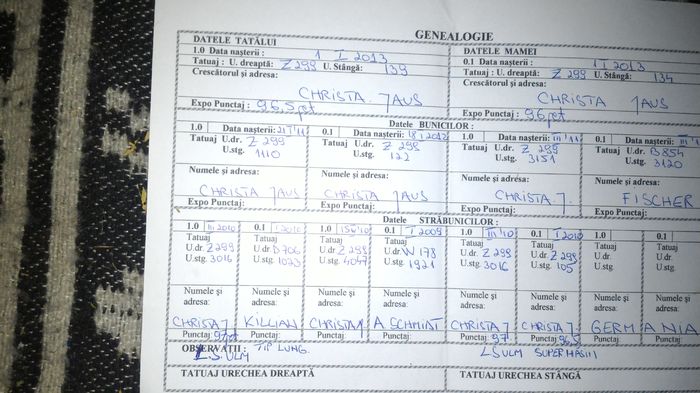 GENEALOGIE
DATELE TATĂLUI
DATELE MAMEI
1.0 Data naşterii : 1 I 2013
0.1 Data naşterii : 1 I 2013
Tatuaj : U. dreaptă: Z 299 U. Stângă: 139
Tatuaj : U. dreaptă: Z 299 U. Stângă: 134
Crescătorul şi adresa:
Crescătorul şi adresa:
CHRISTA JAUS
CHRISTA JAUS
Expo Punctaj : 96,5 pct
Expo Punctaj : 96 pct
Datele BUNICILOR :
1.0 Data naşterii: 11
0.1 Data naşterii: I 2012
1.0 Data naşterii: III '11
0.1 Data naşterii: III
Tatuaj U.dr. Z 299
Tatuaj U.dr. Z 298
Tatuaj U.dr. Z 299
Tatuaj U.dr. B 854
U.stg. 1110
U.stg. 122
U.stg. 3151
U.stg. 3120
Numele şi adresa:
Numele şi adresa:
Numele şi adresa:
Numele şi adresa:
CHRISTA JAUS
CHRISTA JAUS
CHRISTA J.
FISCHER
Expo Punctaj:
Expo Punctaj:
Expo Punctaj:
Expo Punctaj:
Datele STRĂBUNICILOR :
1.0 III 2010
0.1 I 2010
1.0 '10
0.1 I 2009
1.0 III '10
0.1 I 2010
1.0
0.1
Tatuaj
Tatuaj
Tatuaj
Tatuaj
Tatuaj
Tatuaj
Tatuaj
Tatuaj
U.dr. Z 299
U.dr. D 706
U.dr. Z 298
U.dr. W 178
U.dr. Z 298
U.dr. Z 298
U.dr.
U.dr.
U.stg. 3016
U.stg. 1023
U.stg. 4047
U.stg. 1921
U.stg. 3016
U.stg. 105
U.stg.
U.stg.
Numele şi
Numele şi
Numele şi
Numele şi
Numele şi
Numele şi
Numele şi
Numele şi
adresa:
adresa:
adresa:
adresa:
adresa:
adresa:
adresa:
adresa:
CHRISTA J
KILLIAN
CHRISTA J
A SCHMIDT
CHRISTA J
CHRISTA J
GERMANIA
Punctaj: 97 pct
Punctaj:
Punctaj:
Punctaj:
Punctaj: 97
Punctaj: 96,5
Punctaj:
Punctaj:
OBSERVAŢII : TIP LUNG.
L.S. ULM
LS ULM SUPER MASIV
TATUAJ URECHEA DREAPTĂ
TATUAJ URECHEA STÂNGĂ